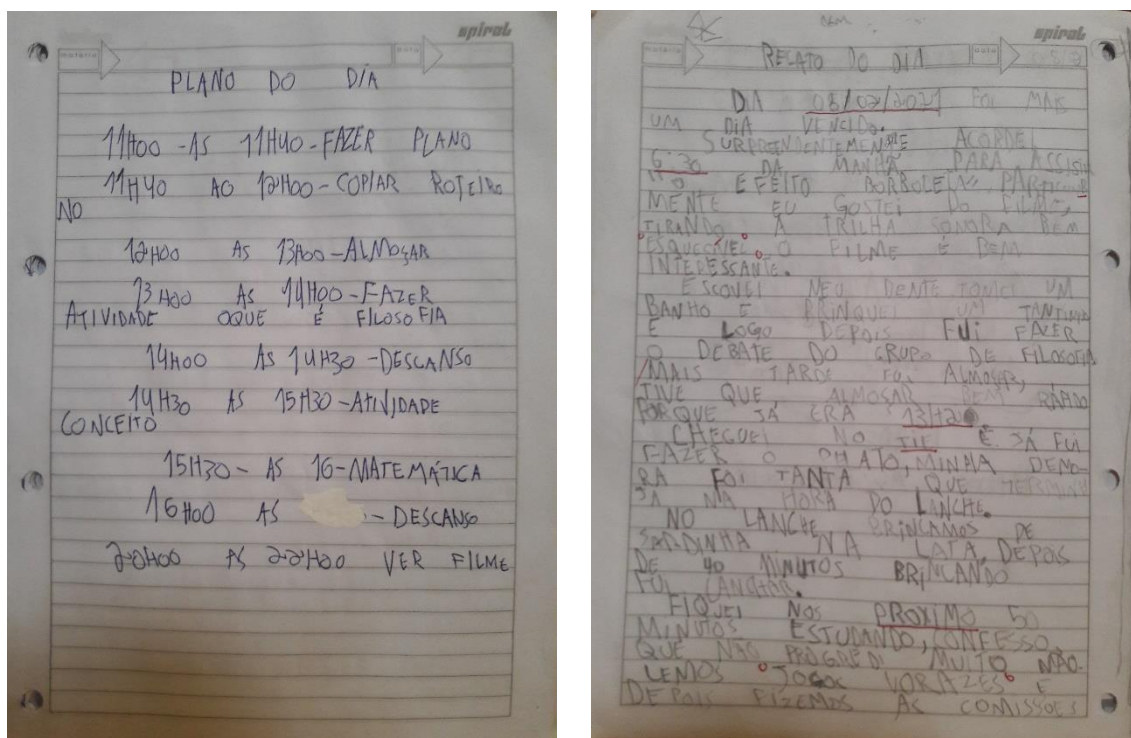 spiral
matéria
data
PLANO DO DIA
11H00 - AS 11H40 - FAZER PLANO
11H40 AO 12H00 - COPIAR ROTEIRO
NO
12H00 AS 13H00 - ALMOÇAR
13H00 AS 14H00 - FAZER
ATIVIDADE OQUE É FILOSOFIA
14H00 AS 14H30 - DESCANSO
14H30 AS 15H30 - ATIVIDADE
CONCEITO
15H30 - AS 16 - MATEMÁTICA
16H00 AS - DESCANSO
20H00 AS 22H20 VER FILME
spiral
RELATO DO DIA
DIA 08/02/2021 FOI MAIS
UM DIA VENCIDO.
SURPREENDENTEMENTE ACORDEI
6:30 DA MANHÃ PARA ASSISTI
"O EFEITO BORBOLETA"
MENTE EU GOSTEI DO FILME,
TIRANDO A TRILHA SONORA BEM
"ESQUECÍVEL" O FILME É BEM
INTERESSANTE.
ESCOVEI MEU DENTE TOMEI UM
BANHO E BRINQUEI UM TANTINHO
E LOGO DEPOIS FUI FAZER
O DEBATE DO GRUPO DE FILOSOFIA
MAIS TARDE FUI ALMOSAR,
TIVE QUE ALMOSAR BEM RÁPIDO
PORQUE JÁ ERA 13H20
CHEGUEI NO TIE E JÁ FUI
FAZER O CHATO, MINHA DEMO-
RA FOI TANTA QUE TERMINEI
JÁ NA HORA DO LANCHE.
NO LANCHE BRINCAMOS DE
SARDINHA NA LATA, DEPOIS
DE 40 MINUTOS BRINCANDO
FUI LANCHAR.
FIQUEI NOS PROXIMO 50
MINUTOS ESTUDANDO, CONFESSO
QUE NÃO PROGREDI MUITO NÃO.
LEMOS "JOGOS VORAZES" E
DEPOIS FIZEMOS AS COMISSÕES